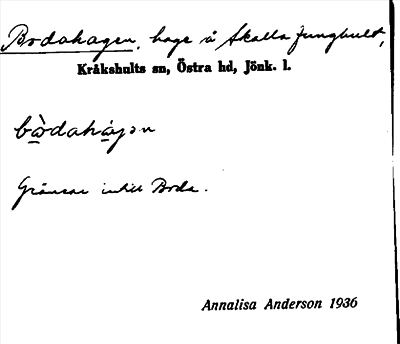 Bodahagen, hage å Skalla Ljunghult,
Kråkshults sn, Östra hd, Jönk. l.
bòdahàgən
Gränsar intill Boda.
Annalisa Anderson 1936